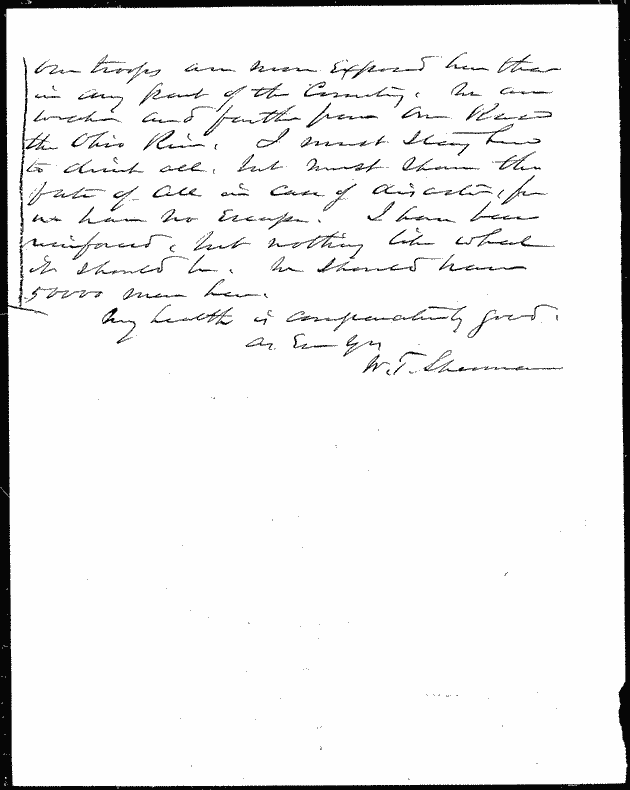 Our troops are more exposed here than
in any part of the Country. We are
and farther from our Base
the Ohio River. I must stay here
to direct all, but must share the
fate of all in case of disaster, for
we have no Escape. I have been
reinforced, but nothing like what
it should be. We should have
50000 men here.
My health is comparatively good.
as Ever Yrs
W. T. Sherman